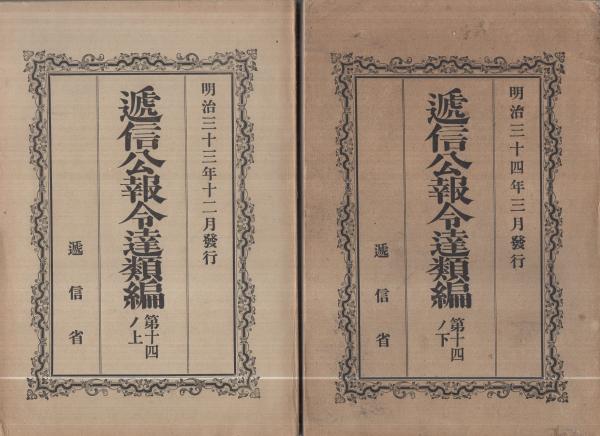 明治三十三年十二月發行
遞信公報令達類編 第十四ノ上
遞信省
明治三十四年三月發行
遞信公報令達類編 第十四ノ下
遞信省